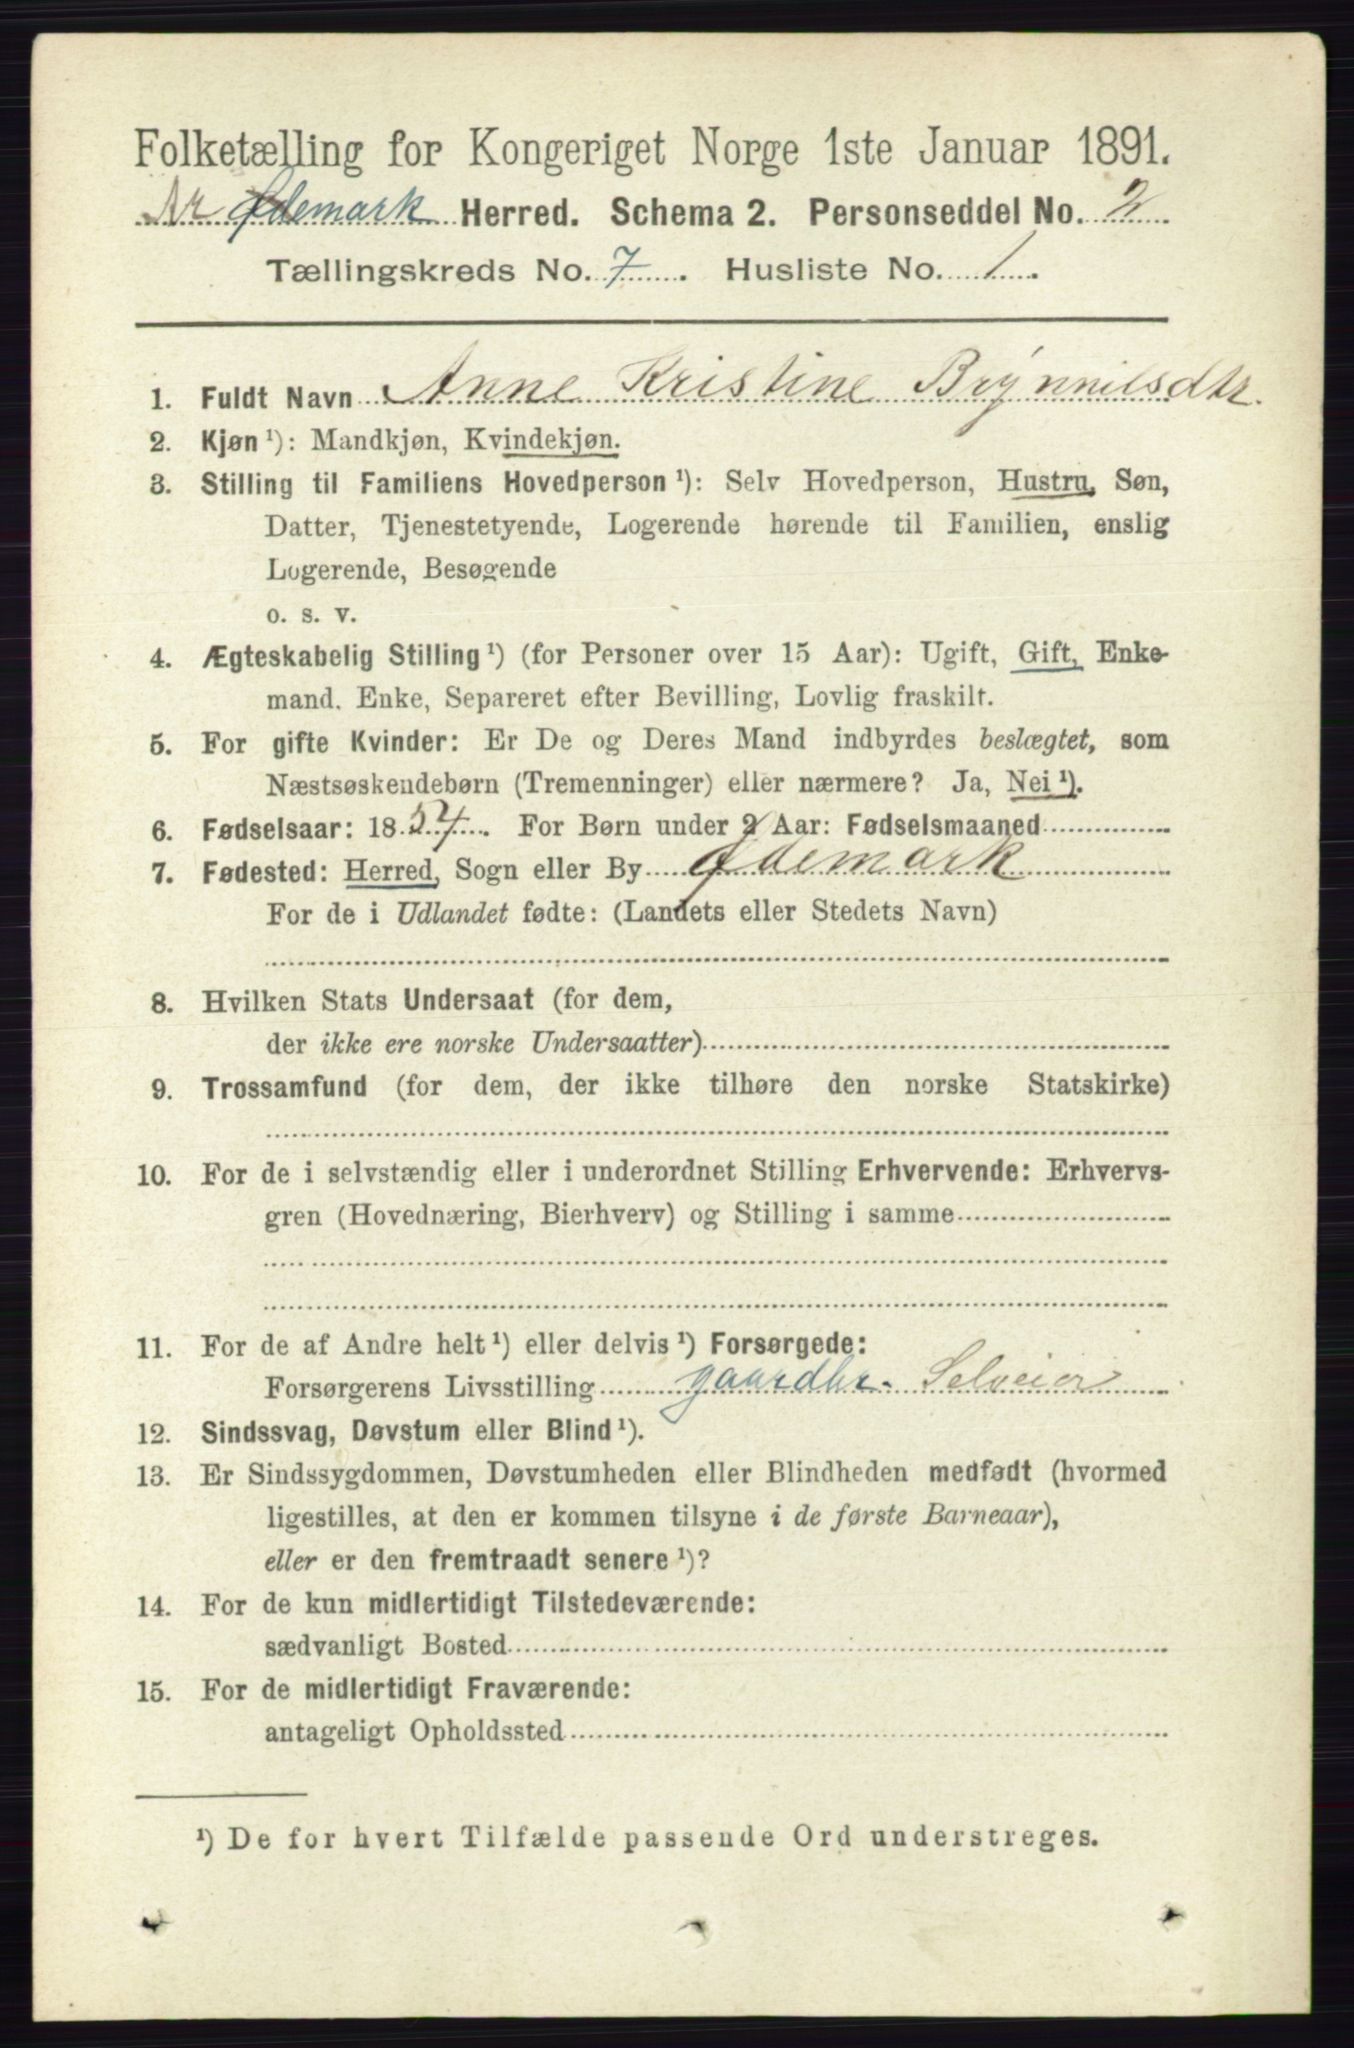 Folketælling for Kongeriget Norge 1ste Januar 1891.
Ødemark Herred. Schema 2. Personseddel No. 2
Tællingskreds No. 7. Husliste No. 1.
1. Fuldt Navn Anne Kristine Brynnilsdtr.
2. Kjøn ¹): Mandkjøn, Kvindekjøn.
3. Stilling til Familiens Hovedperson ¹): Selv Hovedperson, Hustru, Søn,
Datter, Tjenestetyende, Logerende hørende til Familien, enslig
Logerende, Besøgende
o. s. v.
4. Ægteskabelig Stilling ¹) (for Personer over 15 Aar): Ugift, Gift, Enke-
mand. Enke, Separeret efter Bevilling, Lovlig fraskilt.
5. For gifte Kvinder: Er De og Deres Mand indbyrdes beslægtet, som
Næstsøskendebørn (Tremenninger) eller nærmere? Ja, Nei ¹).
6. Fødselsaar: 1854. For Børn under 2 Aar: Fødselsmaaned
7. Fødested: Herred, Sogn eller By Ødemark
For de i Udlandet fødte: (Landets eller Stedets Navn)
8. Hvilken Stats Undersaat (for dem,
der ikke ere norske Undersaatter)
9. Trossamfund (for dem, der ikke tilhøre den norske Statskirke)
10. For de i selvstændig eller i underordnet Stilling Erhvervende: Erhvervs-
gren (Hovednæring, Bierhverv) og Stilling i samme
11. For de af Andre helt ¹) eller delvis ¹) Forsørgede:
Forsørgerens Livsstilling gaardbr. Selveier
12. Sindssvag, Døvstum eller Blind ¹).
13. Er Sindssygdommen, Døvstumheden eller Blindheden medfødt (hvormed
ligestilles, at den er kommen tilsyne i de første Barneaar),
eller er den fremtraadt senere ¹)?
14. For de kun midlertidigt Tilstedeværende:
sædvanligt Bosted
15. For de midlertidigt Fraværende:
antageligt Opholdssted
¹) De for hvert Tilfælde passende Ord understreges.